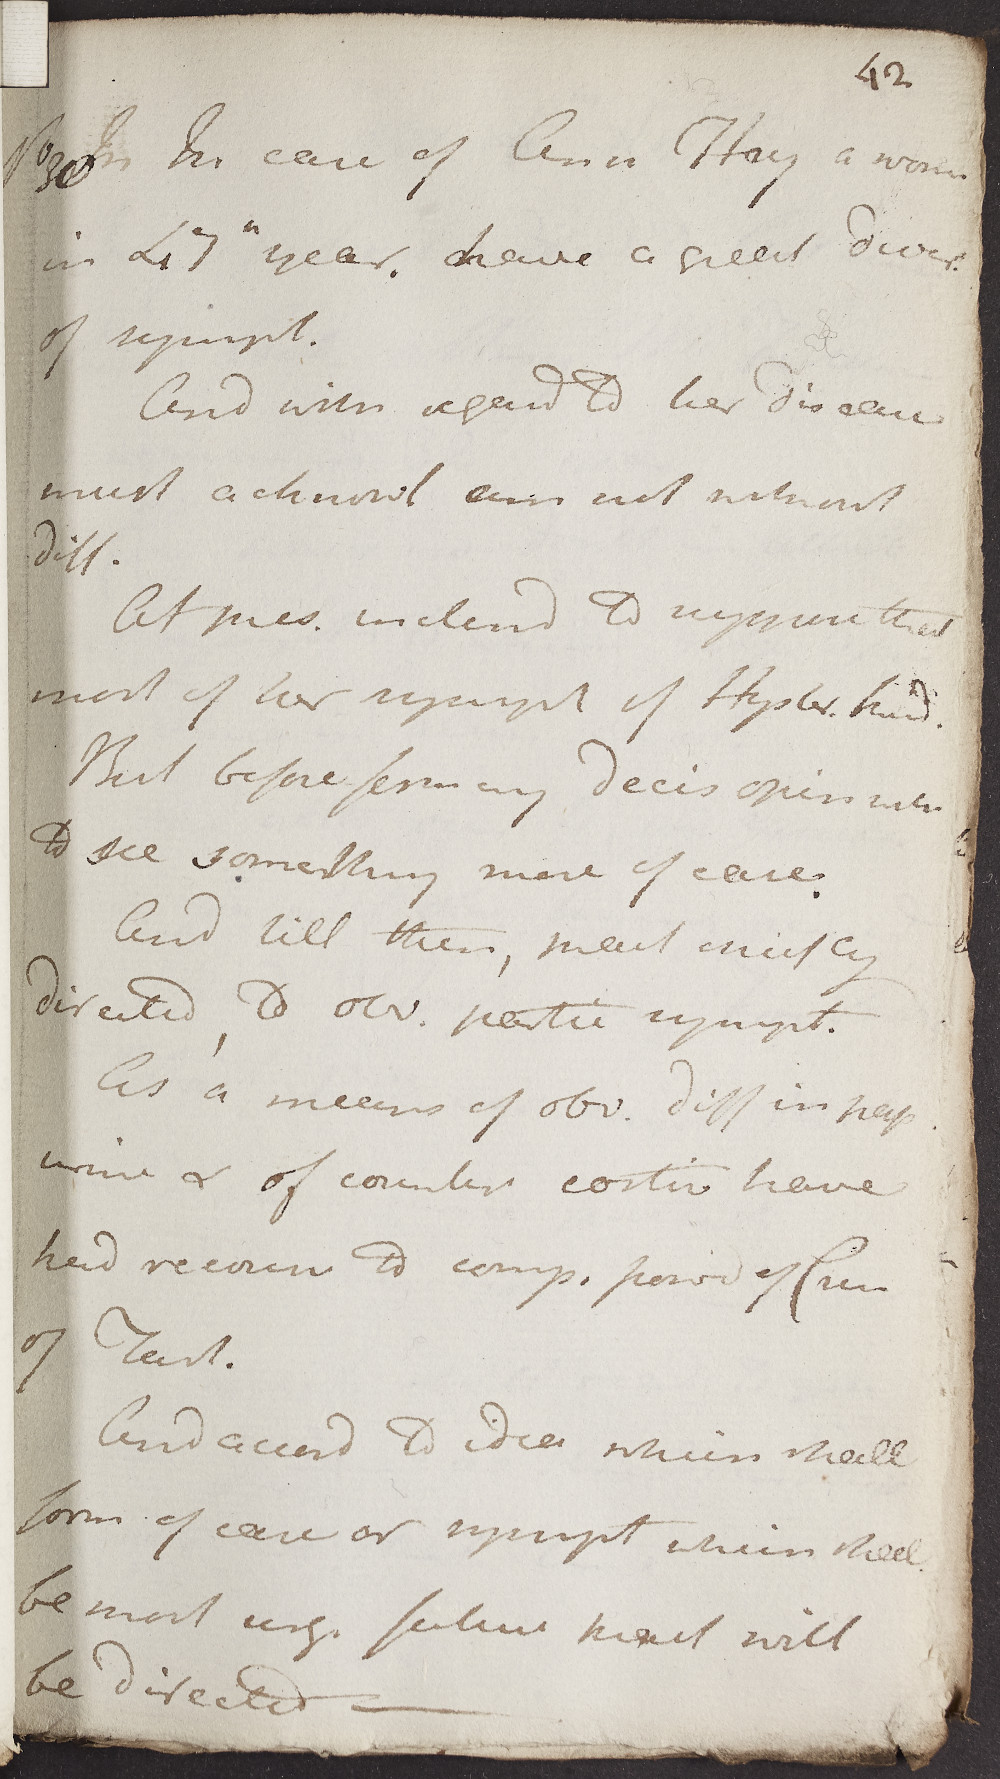 42
No 30 In In case of Ann Hay a wom
in 47th year. have a great diver.
of sympt.
And with regard to her disease
must acknowl am not without
diff.
At pres. inclend to suppose that
most of her sympt of Hyster. kind.
But before form any decis opin wish
to see something more of case.
And till then, treat chiefly
directed, to obv. partic sympt.
As a means of obv. diff in pass.
urine & of counter costiv have
had recours to comp. powd of Crem
of Tart.
And accord to idea which shall
form of case or sympt which shall
be most urg. future treat will
be directed